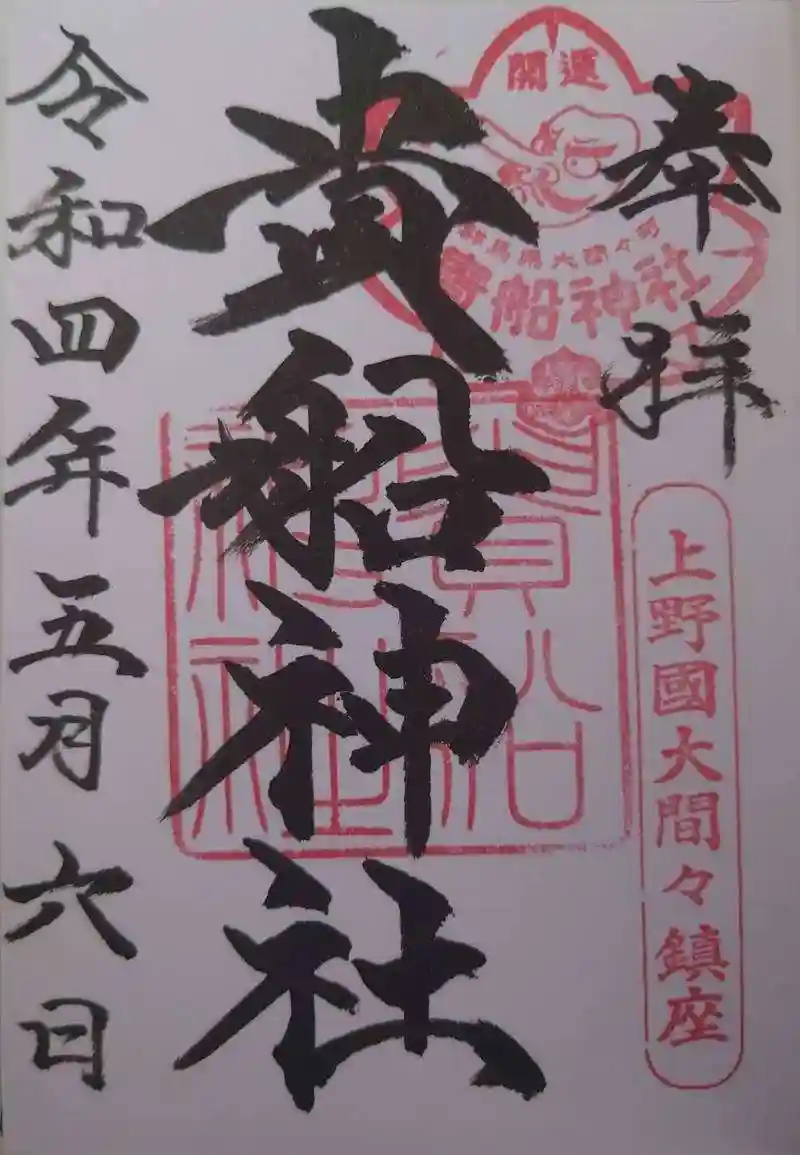 奉拝
開運
群馬県大間々町
貴船神社
上野國大間々鎮座
貴船神社
貴船
神社
令和四年五月六日